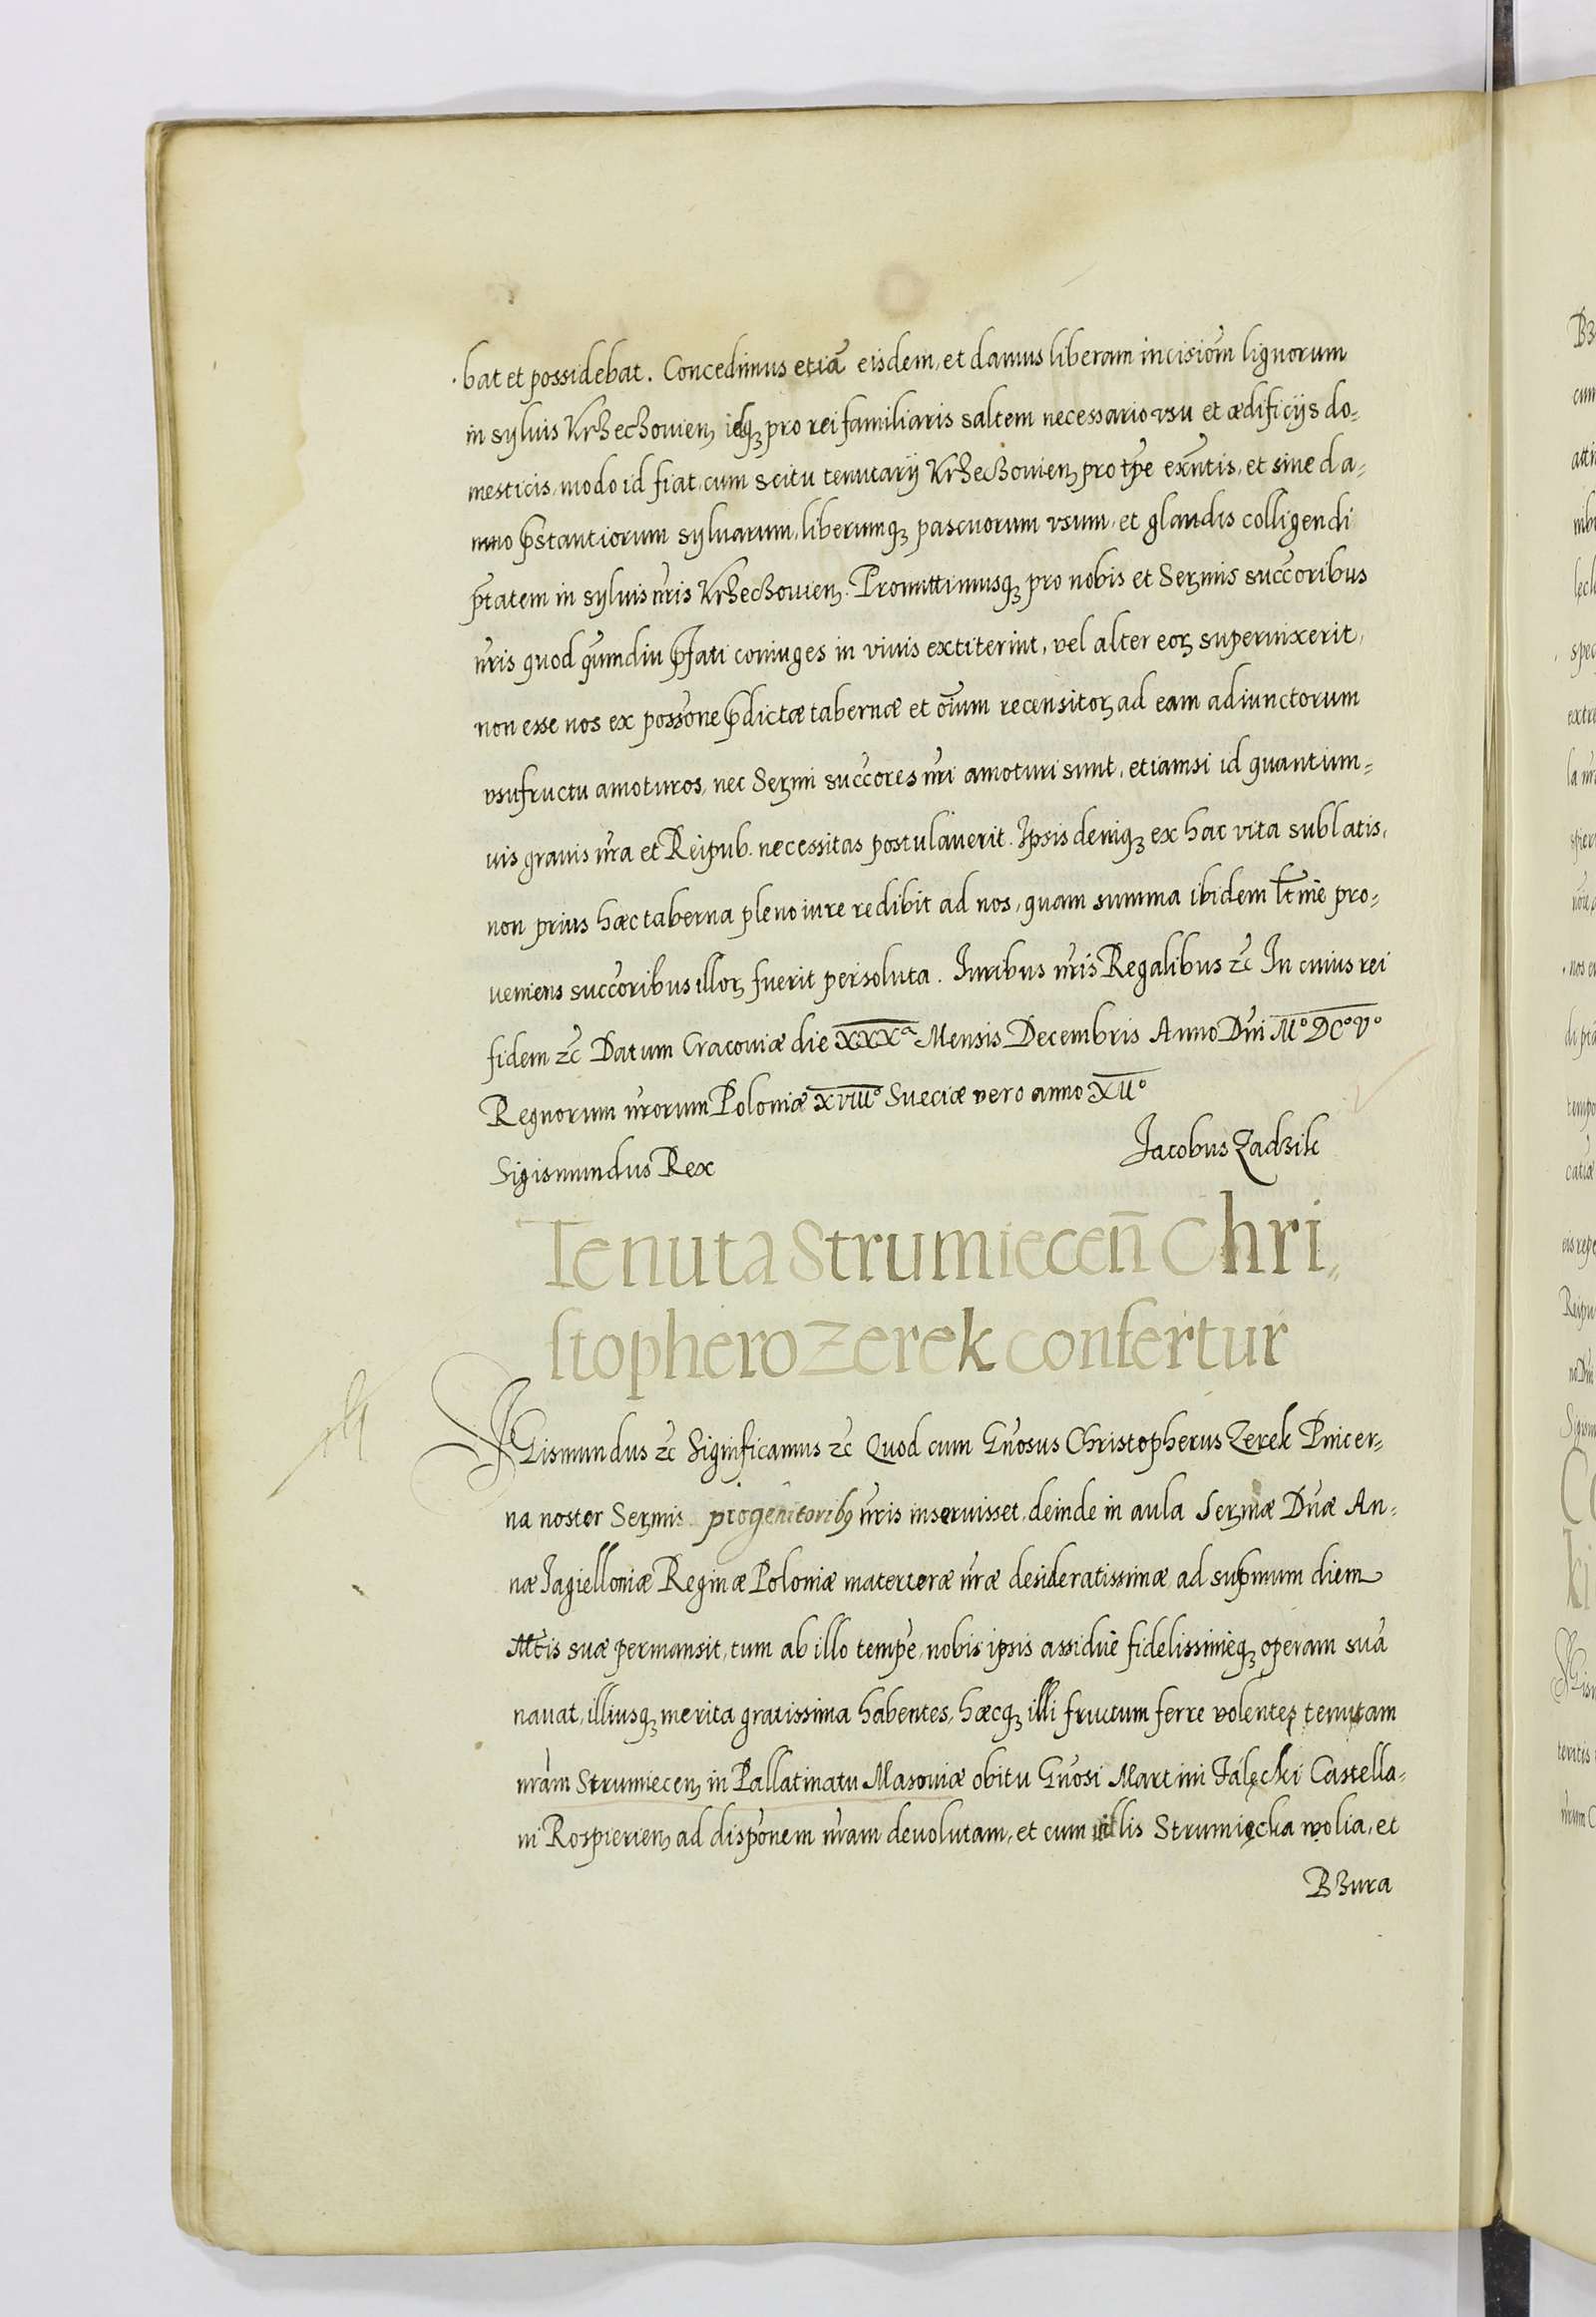 bat et possidebat. Concedimus etiã eisdem, et damus liberam incisiõm lignorum
in syluis Krzeczouien̨ idq̨ pro rei familiaris saltem necessario vsu et ædificijs do=
mesticis, modo id fiat cum scitu tenutarij Krzeczouien̨ pro tp̃e exñtis, et sine da=
mno p̃stantiorum syluarum, liberumq̨ pascuorum vsum, et glandis colligendi
p̃tatem in syluis ñris Krzeczouien̨. Promittimusq̨ pro nobis et Serm̃is succ̃oribus
ñris quod q̃umdiu p̃fati coniuges in viuis extiterint, vel alter eor̨ superuixerit,
non esse nos ex poss̃one p̃dictæ tabernæ et oĩum recensitor̨ ad eam adiunctorum
vsufructu amoturos, nec Serm̃i succ̃ores ñri amoturi sunt, etiamsi id quantum=
uis grauis ñra et Reipub. necessitas postulauerit. Ipsis deniq̨ ex hac vita sublatis,
non prius hæc taberna pleno iure redibit ad nos, quam summa ibidem lt̃ime pro=
ueniens succ̃oribus illor̨ fuerit persoluta. Iuribus ñris Regalibus zc̃ In cuius rei
fidem zc̃ Datum Cracouiæ die XXXª Mensis Decembris Anno Dñi M° DC° V°
Regnorum ñrorum Poloniæ XVIII° Sueciæ vero anno XII°
Sigismundus Rex Jacobus Zadzik
Tenuta Strumiecen̄ Chri=
stophero Zerek confertur
SIGismundus zc̃ Significamus zc̃ Quod cum Gñosus Christopherus Zerek Pincer=
na noster Serm̃is progenitorib9 ñris inseruisset, deinde in aula Serm̃æ Dñæ An=
næ Jagielloniæ Reginæ Poloniæ materteræ ñræ desideratissimæ ad sup̃mum diem
Mt̃is suæ permansit, tum ab illo temp̃e, nobis ipsis assidue fidelissimeq̨ operam suã
nauat, illiusq̨ merita gratissima habentes, hæcq̨ illi fructum ferre volentes tenutam
ñram Strumiecen̨ in Pallatinatu Masouiæ obitu Gñosi Martini Falęcki Castella=
ni Rospierien̨ ad disp̃onem ñram deuolutam, et cum villis Strumięcka wolia, et
Bzura